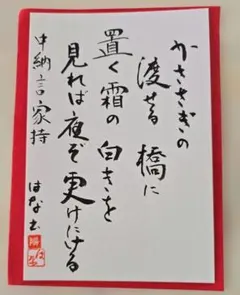 かささぎの
渡せる橋に
置く霜の白きを
見れば夜ぞ更けにける
中納言家持
はな書